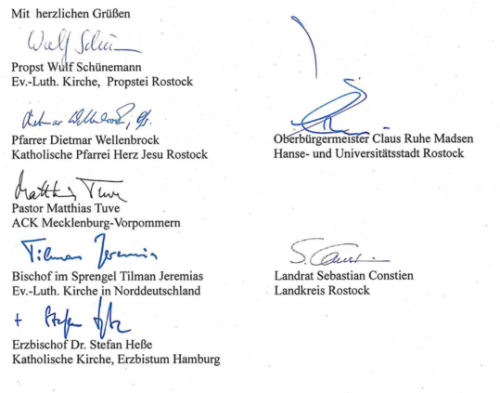 Mit herzlichen Grüßen
Wulf Schün
Propst Wulf Schünemann
Ev.-Luth. Kirche, Propstei Rostock
Dietmar Wellenbrock, Pfr.
Pfarrer Dietmar Wellenbrock
Katholische Pfarrei Herz Jesu Rostock
Matthias Tuve
Pastor Matthias Tuve
ACK Mecklenburg-Vorpommern
Tilman Jeremias
Bischof im Sprengel Tilman Jeremias
Ev.-Luth. Kirche in Norddeutschland
+ Stefan Heße
Erzbischof Dr. Stefan Heße
Katholische Kirche, Erzbistum Hamburg
Oberbürgermeister Claus Ruhe Madsen
Hanse- und Universitätsstadt Rostock
S. Constien
Landrat Sebastian Constien
Landkreis Rostock